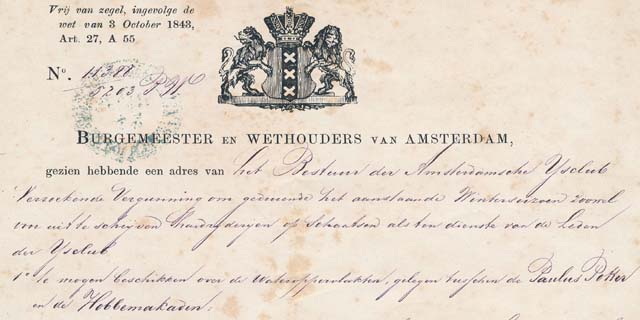 Vrij van zegel, ingevolge de
wet van 3 October 1843,
Art. 27, A 55
No. 11381
5203 P.W.
BURGEMEESTER EN WETHOUDERS VAN AMSTERDAM,
gezien hebbende een adres van het Bestuur der Amsterdamsche Ysclub
Verzoekende Vergunning om gedurende het aanstaande Winterseizoen zoowel
voor uit te schrijven Hardryderyen op Schaatsen als ten dienste van de Leden
der Ysclub
1o te mogen beschikken over de Wateroppervlakten, gelegen tusschen de Paulus Potter
en de Hobbemakaden,